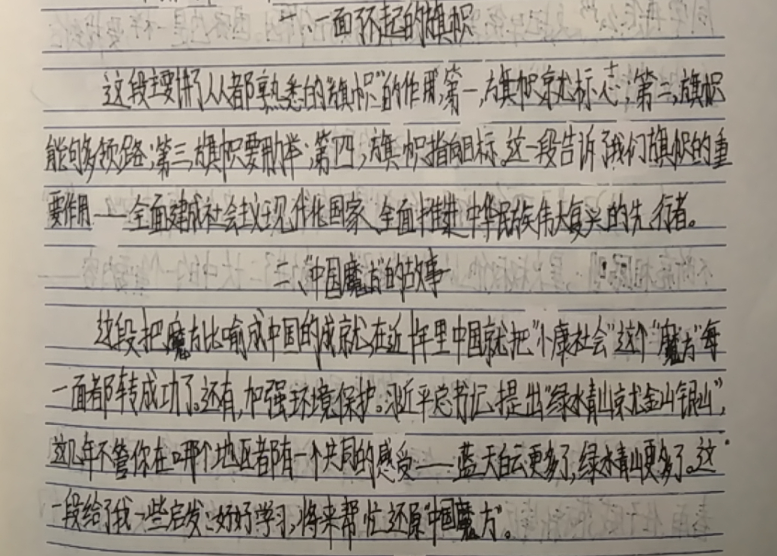 一、一面不起的旗帜
这段主要讲了人人都熟悉的"旗帜"的作用,第一,旗帜就尤标志;第二,旗帜
能够领路;第三,旗帜要刚举;第四,旗帜指向目标。这一段告诉了我们旗帜的重
要作用——全面建成社会主义现代化国家、全面推进中华民族伟大复兴的先行者。
二、"中国魔方"的故事
这段把魔方比喻成中国的成就,在近十年里中国就把"小康社会"这个"魔方"每
一面都转成功了。还有,加强环境保护。习近平总书记提出"绿水青山就尤金山银山",
这几年不管你在哪个地区都有一个共同的感受——蓝天白云更多了,绿水青山更多了。这
一段给了我一些启发:好好学习,将来帮忙还原"中国魔方"。